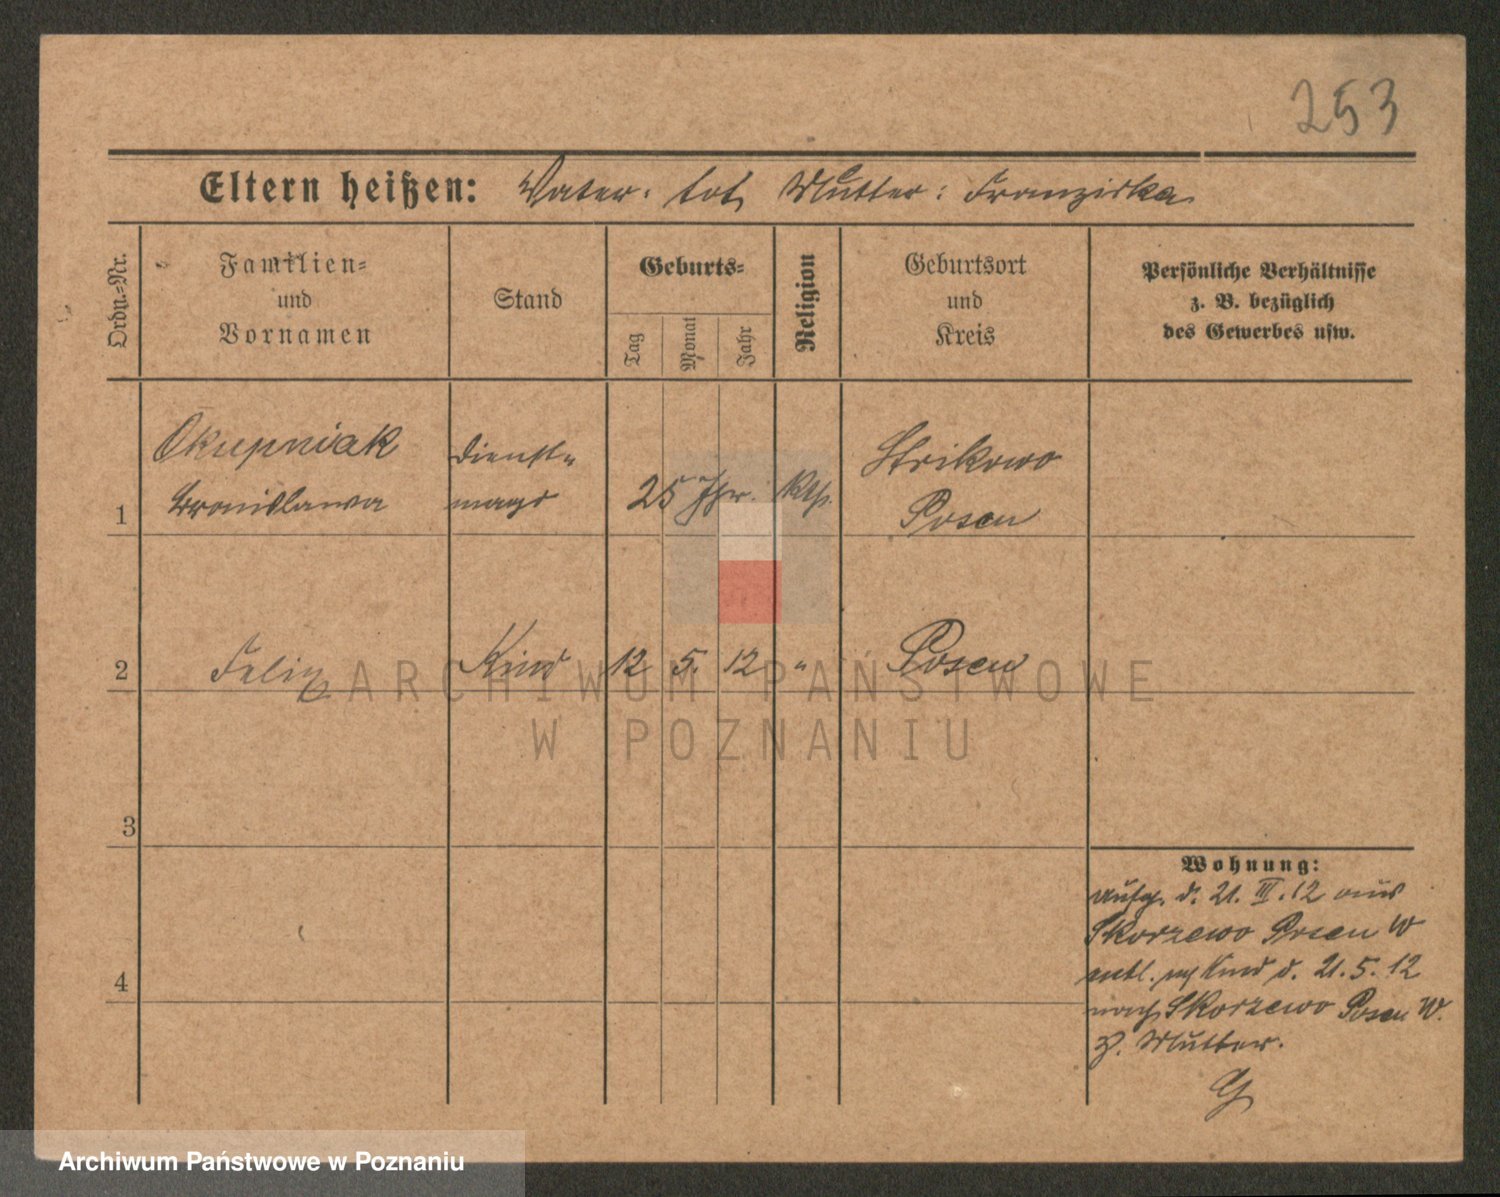 253
Eltern heißen: Vater: tot, Mutter: Franziska
Ordn.-Nr.
Familien-
und
Vornamen
Stand
Geburts-
Tag
Monat
Jahr
Religion
Geburtsort
und
Kreis
Persönliche Verhältnisse
z. B. bezüglich
des Gewerbes usw.
1
Okupniak
Bronislawa
Dienst-
magd
25 Jhr.
kth.
Strikowo
Posen
2
Felix
Kind
12
5.
12
"
Posen
3
4
Wohnung:
Aufg. d. 21. III. 12 aus
Skorzewo Posen W
entl. Kind d. 21. 5. 12
nach Skorzewo Posen W.
z. Mutter.
ARCHIWUM PAŃSTWOWE
W POZNANIU
Archiwum Państwowe w Poznaniu